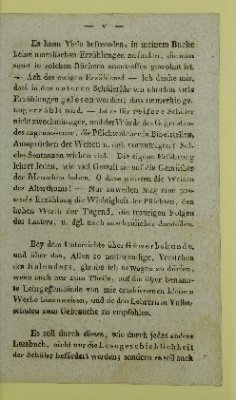 — v —
Es kann Viele befremden, in meinem Buche
keine moralischen Erzählungen zu finden, die man
sonst in solchen Büchern anzutreffen gewohnt ist.
— Ach des ewigen Erzählens! — Ich denke mir,
daß in den unteren Schulen
Erzählungen gelesen werden; daß immerhin ge-
nug erzählt wird. — Ist es für reifere Schüler
nicht zweckmäßiger, und der Würde des Gegenstan-
des angemessener, die Pflichtenlehre in Bibelstellen,
Aussprüchen der Weisen u. dgl. vorzutragen? Sol-
che Sentenzen wirken viel. Die eigene Erfahrung
lehrt Jeden, wie viel Gewalt sie auf die Gemüther
der Menschen haben. O das wussten die Weisen
des Alterthums! — Nur zuweilen mag eine pas-
sende Erzählung die Wichtigkeit der Pflichten, den
hohen Werth der Tugend, die traurigen Folgen
des Lasters, u. dgl. noch anschaulicher darstellen.
Bey dem Unterrichte über Gewerbskunde,
und über das, Allen so nothwendige, Verstehen
des Kalenders, glaube ich es wagen zu dürfen,
wenn auch nur zum Theile, auf die über benann-
te Lehrgegenstände von mir erschienenen kleinen
Werke hinzuweisen, und sie den Lehrern in Volks-
schulen zum Gebrauche zu empfehlen.
Es soll durch dieses, wie durch jedes andere
Lesebuch, nicht nur die Lesegeschicklichkeit
der Schüler befördert werden; sondern es soll auch